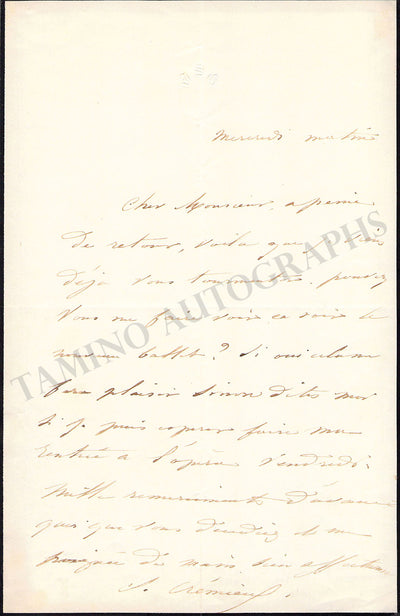 Mercredi matin
Cher Monsieur, a peine
de retour, voila que je viens
déjà vous tourmenter. pouvez
vous me faire voir ce soir le
nouveau ballet? Si oui cela me
fera plaisir sinon dites moi
si je puis esperer faire ma
rentrée à l'opéra vendredi.
Mille remerciements d'avance
quoi que vous décidiez et une
poignée de main bien affectueuse
S. Crémieux.
TAMINO AUTOGRAPHS